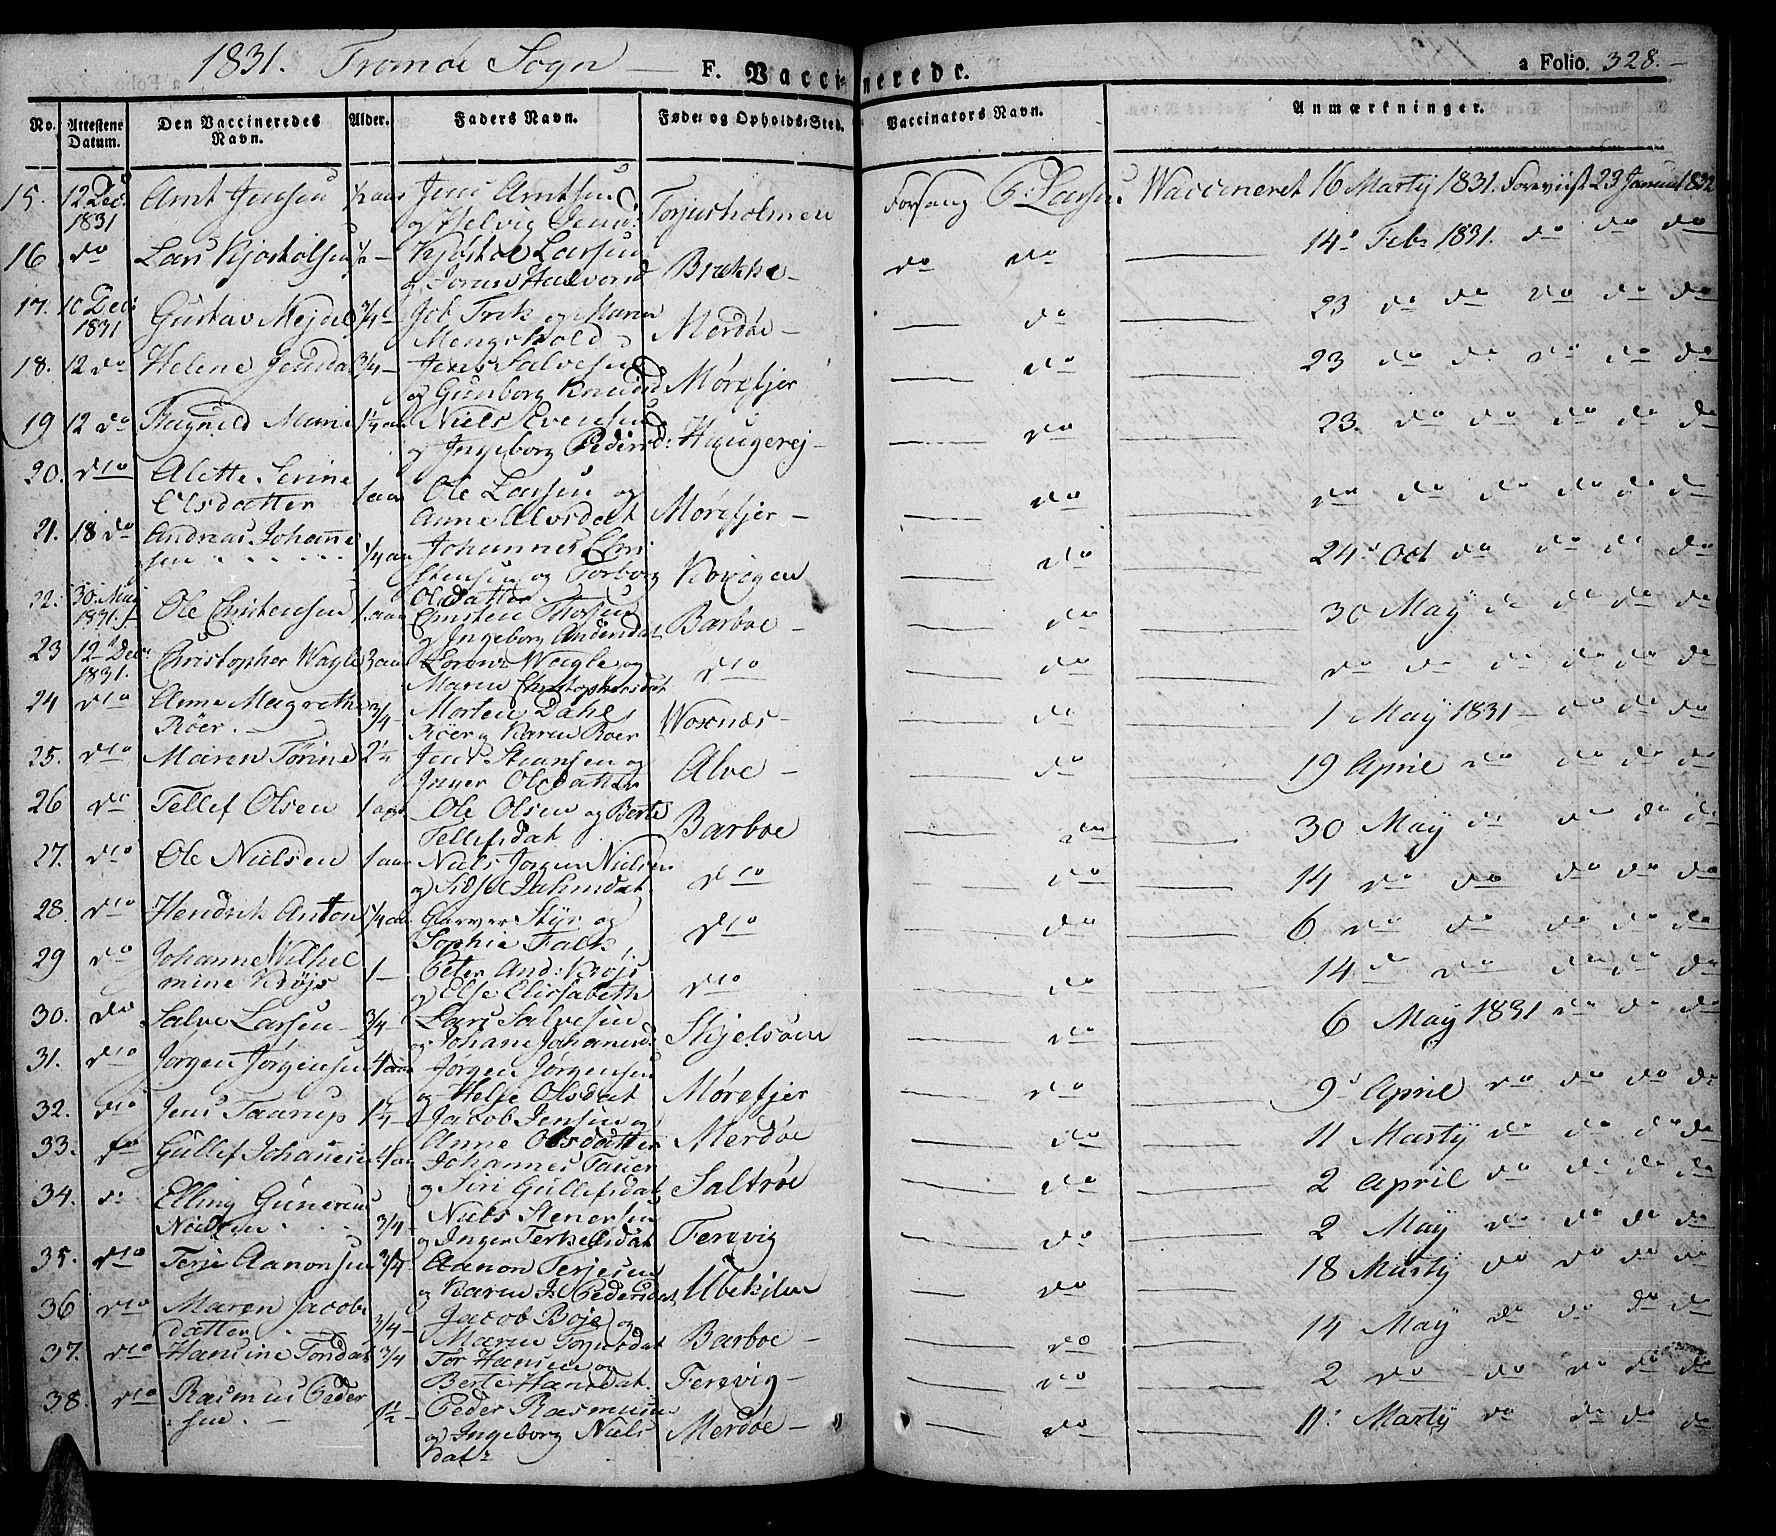 1831. Tromöe Sogn — F. Vaccinerede. a Folio. 328.
No. Attestens Datum. Den Vaccineredes Navn. Alder. Faders Navn. Føde- og Opholds-Sted. Vaccinators Navn. Anmærkninger.
15. 12 Dec. 1831 Arnt Jensen 1/2 aar Jens Arntsen Torjusholmen Forsang C. Larsen. Waccineret 16 Martÿ 1831. Foreviist 23 Januar 1832
og Helvig
16 do Lars Kjøstolsen Kjøstol Larsen Brække do do 14 Feb 1831. do do do
og Joran Halvorsd
17. 10 Dec: 1831 Gustav Mejdel 3/4 Job Frik og Maren Merdøe do 23 do do do do do
Mengshold
18. 12 do Helene Jensda 3/4 Jens Salvesen Mørefjer do 23 do do do do do
og Gunborg Knudsd
19 12 do Ragnild Marie 1 1/4 aar Niels Evensen Haugerej do 23. do do do do do
og Ingeborg Pedersd:
20. do Alette Serine 1 aar Ole Larsen og Mørefjer do do do do do do do
Olsdatter Anne Alvsdat
21. 18 do Andreas Johanne 1/4 aar Johannes Chri Kovigen do 24 Oct do do do do
sen stensen og Torborg
Olsdatter
22. 30. May 1831. Ole Christensen 1. aar Christen Barboe do 30 Maÿ do do do do
og Ingeborg Andersdat
23 12 Dec: 1831. Christopher Wagle 3 aar Lorens Wagle og do do do do do do do do
Maren Christophersdat
24 do Anne Magrethe 3/4 Morten Dahl Woxnæs do 1 Maÿ 1831 do do do
Röer. Röer og Karen Roer
25. do Maren Tørine 2 1/2 Jens og Alve do 19 April do do do do
Inger Olsdatter
26 do Tellef Olsen 1 aar Ole Olsen og Berte Barboe do 30 Maÿ do do do do
Tellefsdat
27. do Ole Nielsen 1 aar Niels Jörgen Nielsen do do 14 do do do do do
og
28. do Hendrik Anton 5/4 aar Garver Styr og do do 6 do do do do do
Sophie Falk
29 do Johanne Wilhel 1 Peter And: Krøjs do do 14 do do do do do
mine Krøjs og Else Elisabeth
30. do Salve Larsen 3/4 Lars Salvesen Skjelsöen do 6 Maÿ 1831 do do do
og Johane Johanesd:
31. do Jörgen Jörgensen 4 aar Jörgen Jörgensen Mørefjer do 9 April do do do do
og Helje Olsdat
32. do Jens Taarup 1 1/4 Jacob Jensen og Merdøe do 11 Martÿ do do do do
Anne Olsdatter
33. do Gullef Johanesen Johannes Tauer Saltrøe do 2 April do do do do
og Siri Gullefsdat
34. do Elling Gunerius 3/4 Niels Stenersen Ferevig do 2 Maÿ do do do do
Nielsen og Inger Terkelsdat
35. do Terje Aanonsen 3/4 Aanon Terjesen Ubekilen do 18 Martÿ do do do do
og Karen Pedersdat
36 do Maren Jacobs 3/4 Jacob Boje og Barboe do 14 Maÿ do do do do
datter Maren Torjusdat
37. do Hansine Torsdat 3/4 Tor Hansen og Ferevig do 2 do do do do do
Berte Hansdat.
38. do Rasmus Peder 1 1/2 Peder Rasmussen Merdøe do 11 Martÿ do do do do
sen. og Ingeborg Niels
dat